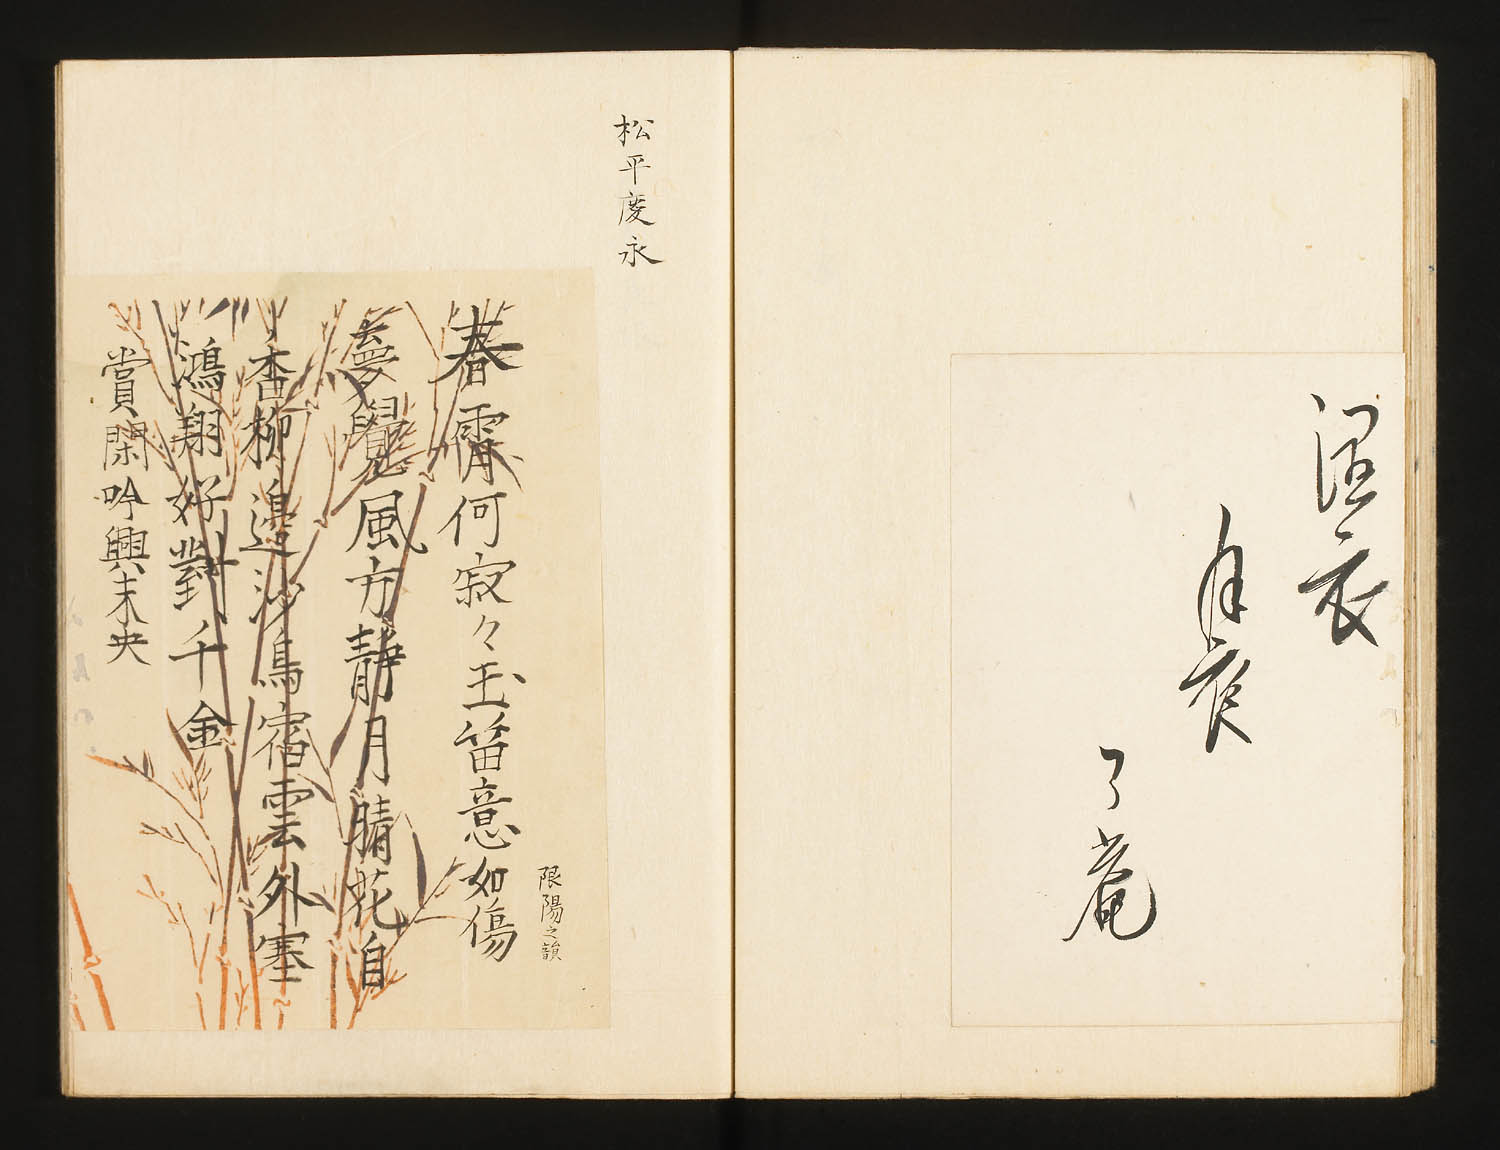 月夜
了菴
松平慶永
限陽之韻
春宵何寂々玉笛意如傷
夢覺風方静月晴花自
杳柳邉沙鳥宿雲外塞
鴻翔好對千金
賞閑吟興未央